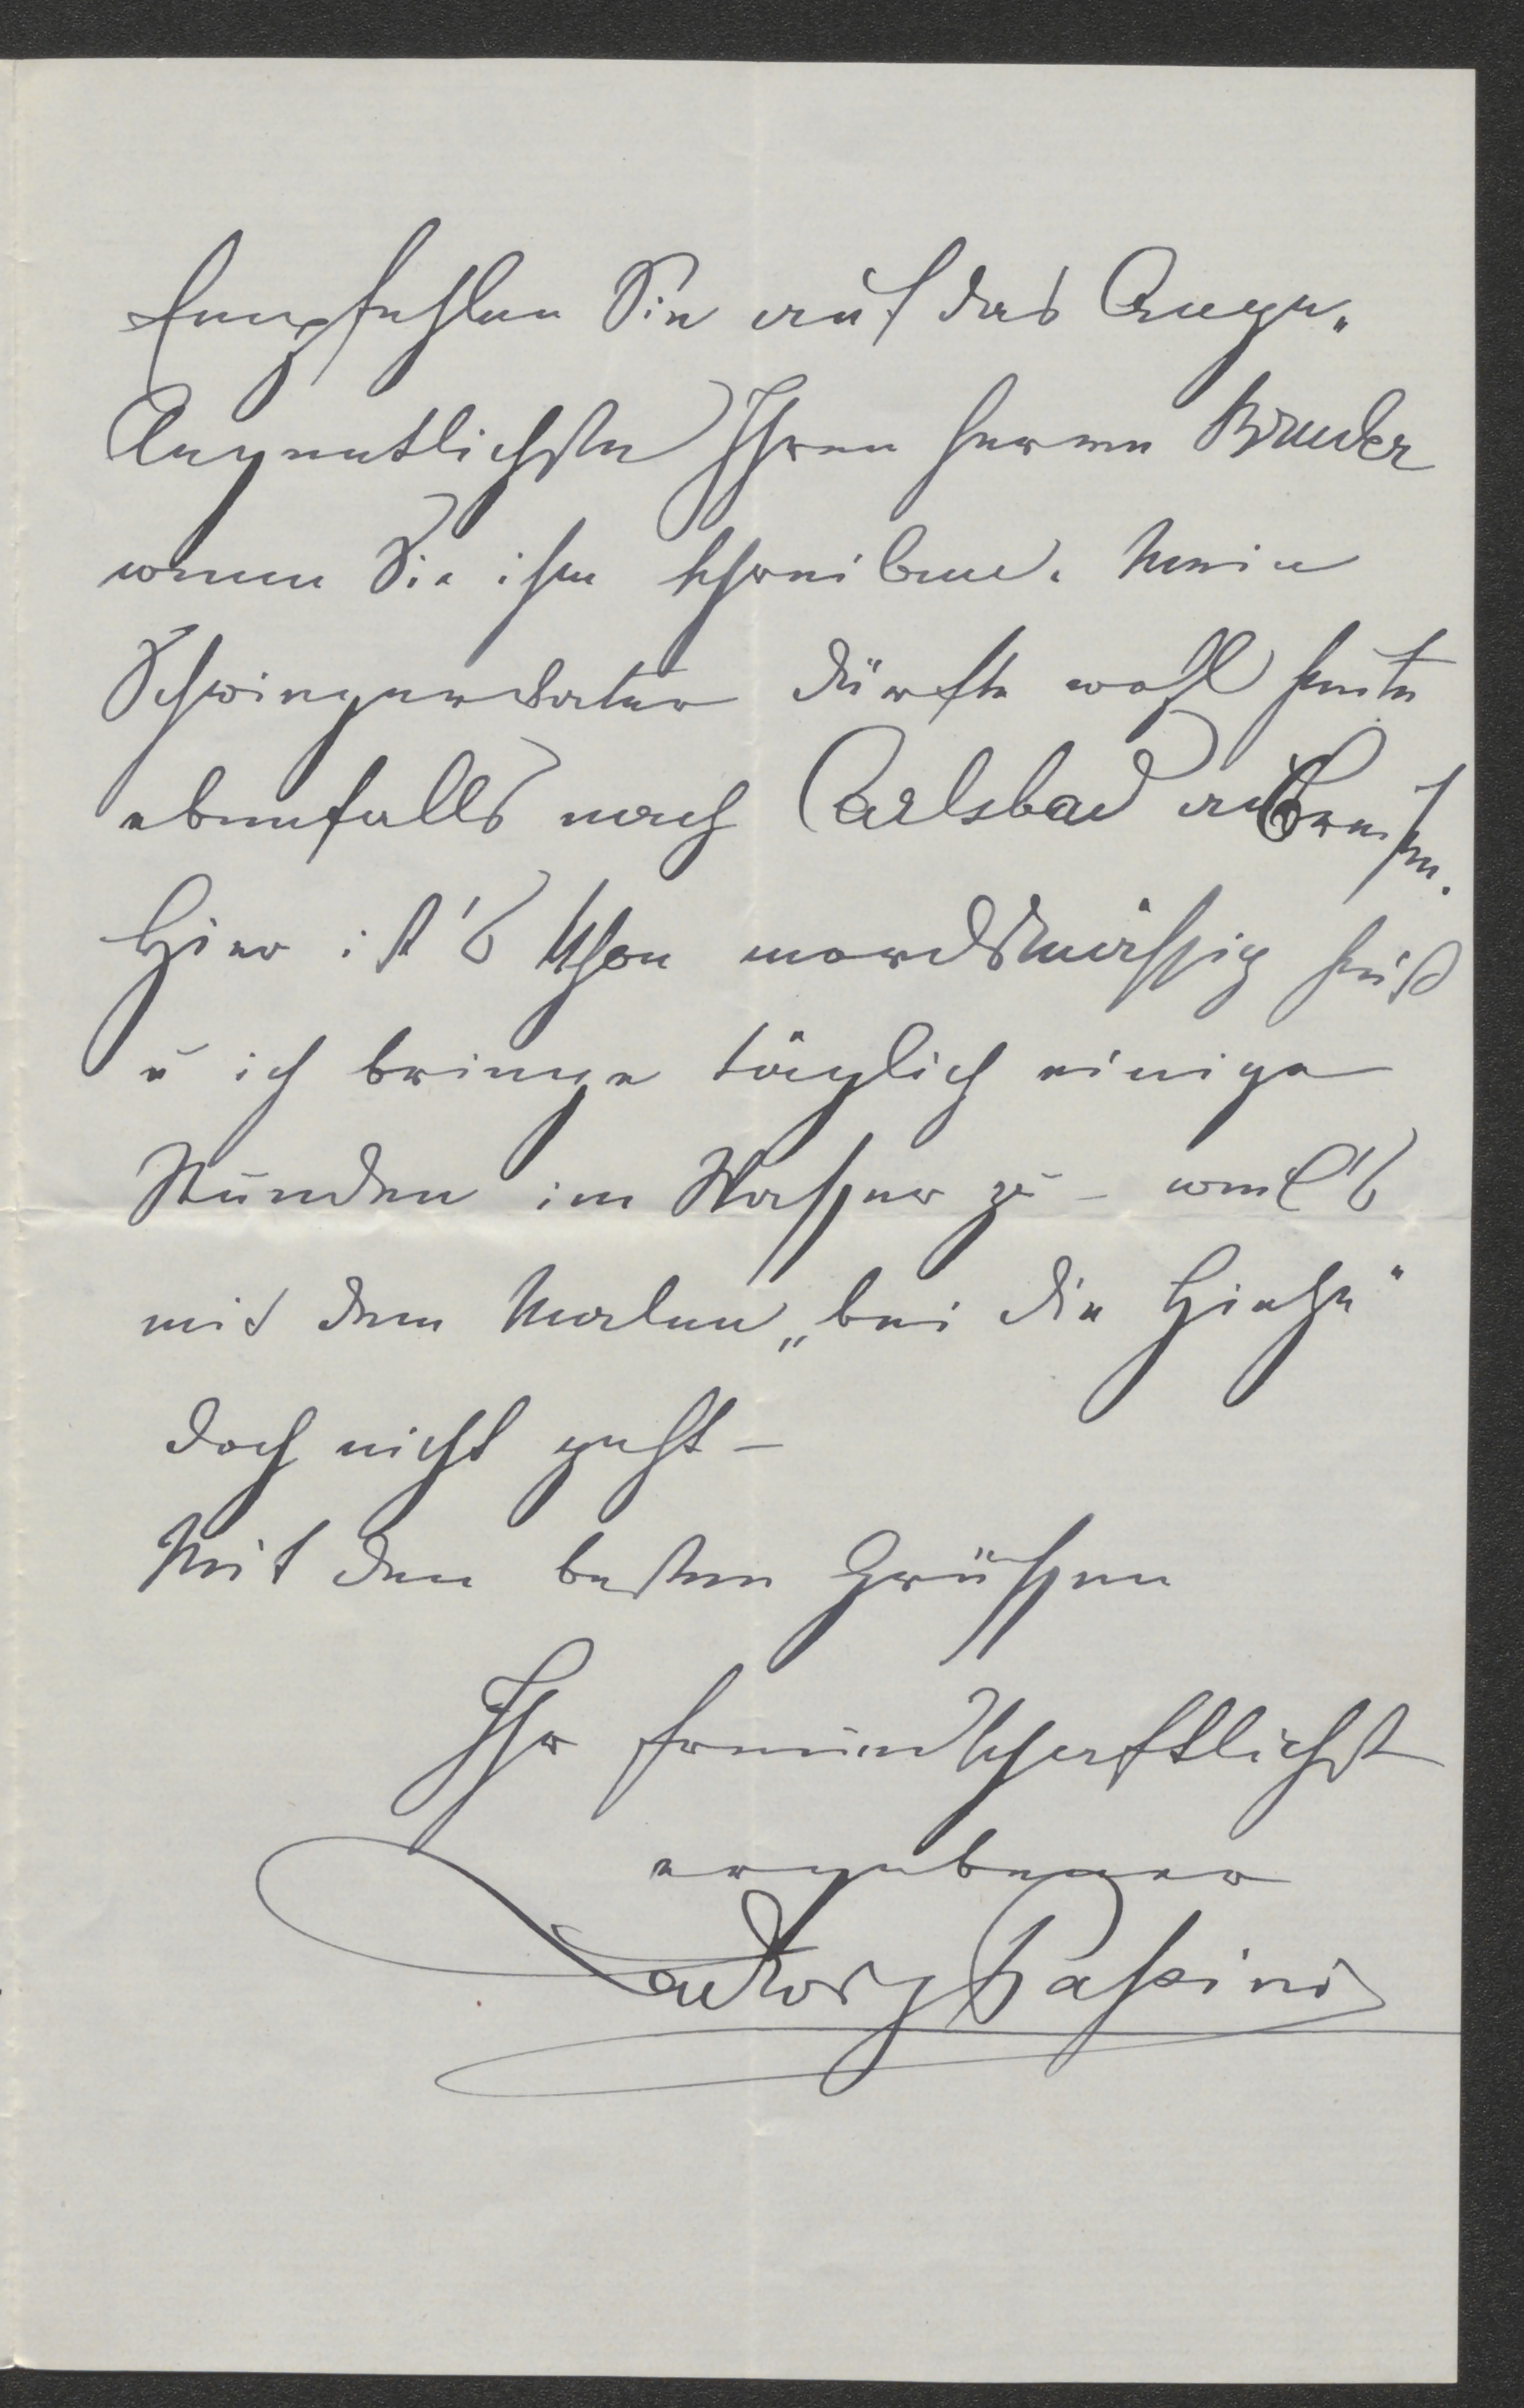 Empfehlen Sie auf das Ange„
Angentlichste Ihren Herren Bruder
wenn Sie ihm schreiben. Mein
Schwiegervater dürfte wohl heute
ebenfalls nach Carlsbad abreisen.
Hier ist's schon mordsmässig heiß
u ich bringe täglich einige
Stunden im Wasser zu – weil's
mit dem Malen „bei die Hietze"
doch nicht geht –
Mit den besten Grüssen
Ihr freundschaftlichst
ergebener
Ludwig Passini